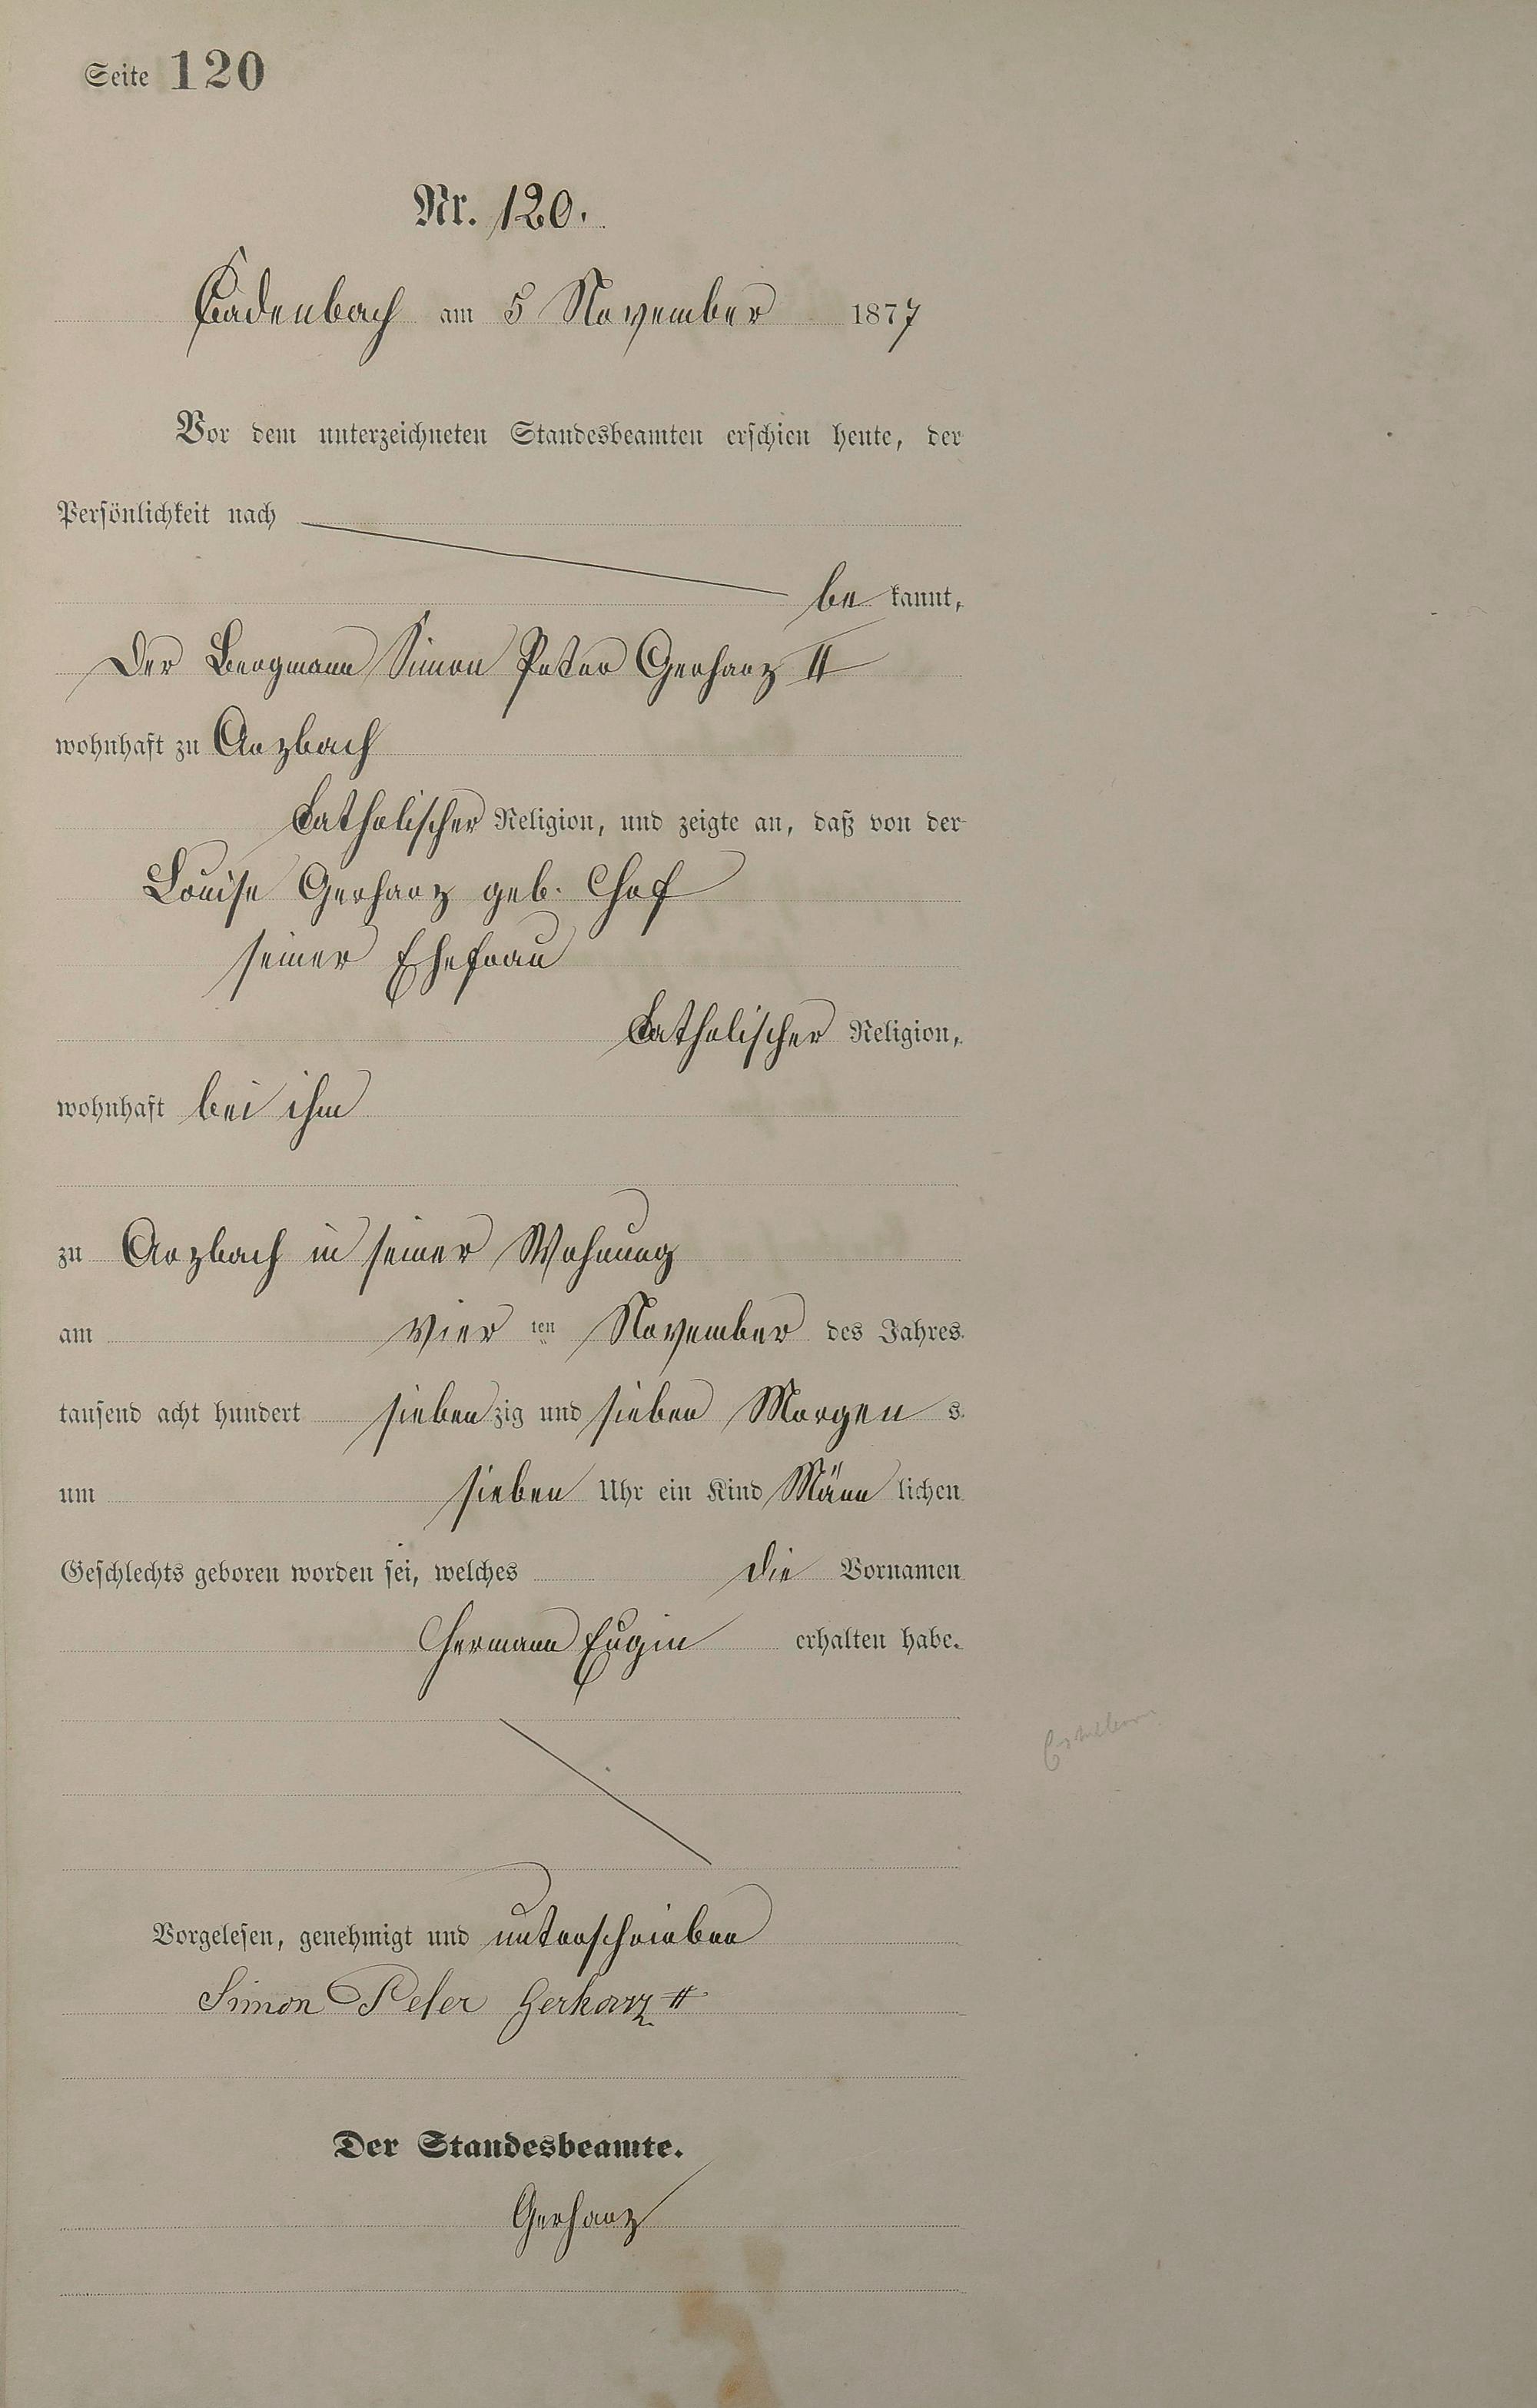 Seite 120
Nr. 120.
Cadenbach am 5 November 1877
Vor dem unterzeichneten Standesbeamten erschien heute, der
Persönlichkeit nach
be kannt,
Der Bergmann Simon Peter Gerharz II
wohnhaft zu Arzbach
Catholischer Religion, und zeigte an, daß von der
Louise Gerharz geb.
seiner Ehefrau
Catholischer Religion,
wohnhaft bei ihm
zu Arzbach in seiner Wohnung
am vier ten November des Jahres
tausend acht hundert sieben zig und sieben Morgen s
um sieben Uhr ein Kind Männ lichen
Geschlechts geboren worden sei, welches die Vornamen
Hermann Eugin erhalten habe.
Vorgelesen, genehmigt und unterschrieben
Simon Peter Gerharz II
Der Standesbeamte.
Gerharz